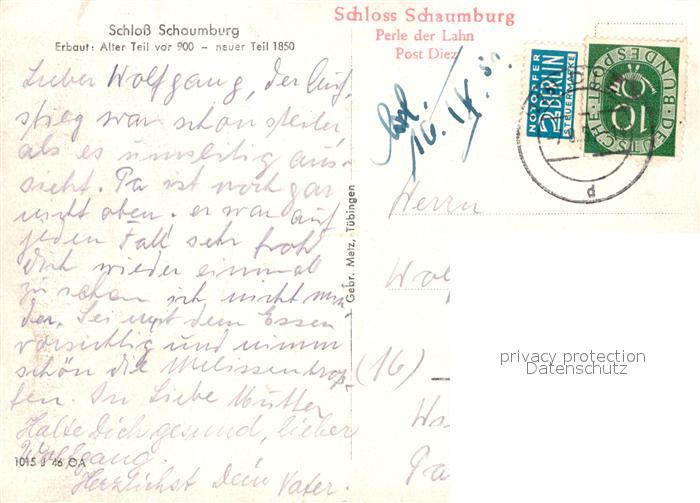 Schloß Schaumburg
Erbaut: Alter Teil vor 900 – neuer Teil 1850
Lieber Wolfgang, der Auf-
stieg war schon steiler
als es umseitig aus-
sieht. Pa ist noch gar
nicht oben. er war auf
jeden Fall sehr froh
Dich wieder einmal
zu sehen ich nicht min-
der. Sei mit dem Essen
vorsichtig und nimm
schön die Melissentrop-
fen. In Liebe Mutter
Halte Dich gesund, lieber
Wolfgang.
Herzlichst Dein Vater.
1015 J 46 OA
Gebr. Metz, Tübingen
Schloss Schaumburg
Perle der Lahn
Post Diez
16. IX. 
NOTOPFER
2 BERLIN
STEUERMARKE
DEUTSCHE BUNDESPOST
10
d
Herrn
Wolf
(16)
privacy protection
Datenschutz